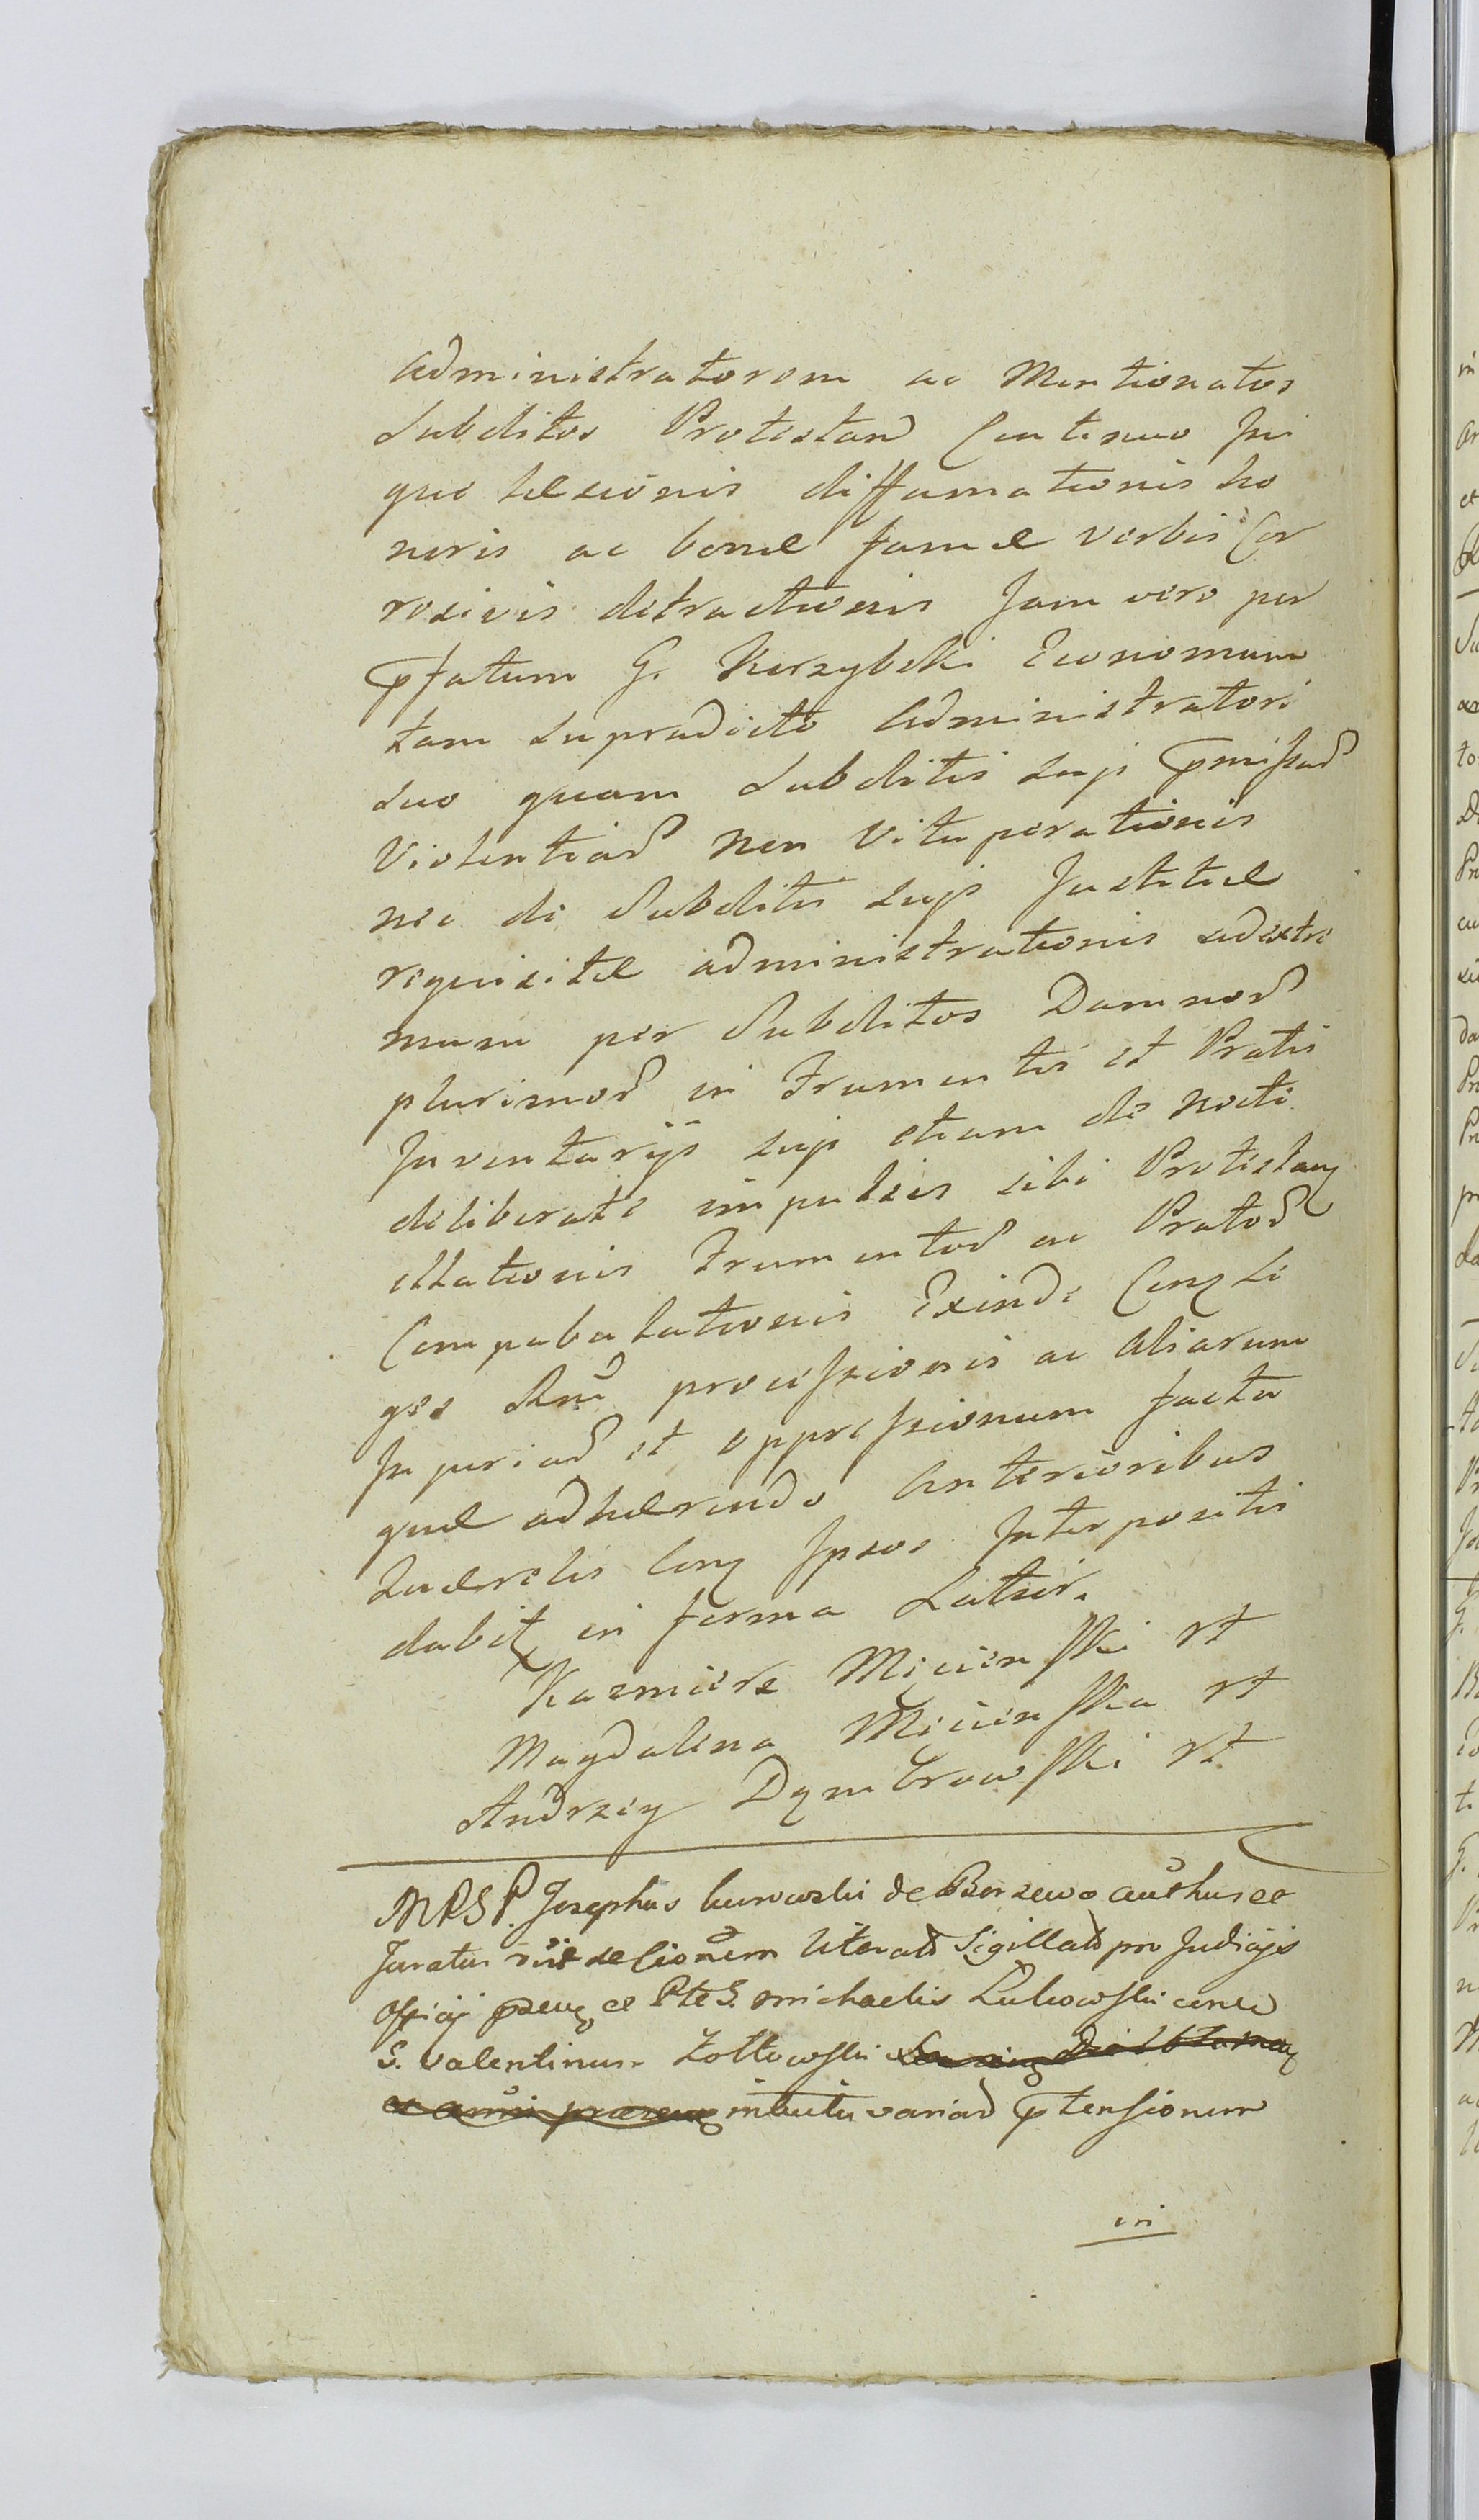 administratorem ac Mentionatos
Subditos Protestand Continuo Ini
quo lesionis diffamationis ho
noris ac bonæ famæ verbis Cor
rosivis detractionis Jam vero per
pfatum G. Karzybski Economum
tam supradicto Administratori
suo quam Subditis sup pmissad
Violentiad non Vituperationis
nec de Subditis sups Justitiæ
requisitæ administrationis adextre
mum per Subditos Damnod
plurimod in Frumentis et Pratis
Inventarijs sup etiam de nocte
deliberate impulsis sibi Protestanz
illationis Frumentod ac Pratod
Compabulationis Exinde Conz Le
ges Rni processionis ac Aliarum
Injuriad et oppressionum facta
quæ adhærendo Anterioribus
Quærelis conz Ipsos Interpositis
dabit in forma Latior.
Kazmierz Micienski rt
Magdalena Micienska rt
Andrzey Dymbrowski rt
MRSP. Josephus Curowski de Borzewo
Juratus literad Sigillad pro Judicijs
officij Pte S. Michaelis Lukowski
S. Valentinum Zoltowski
intuitu variad ptensionum
in